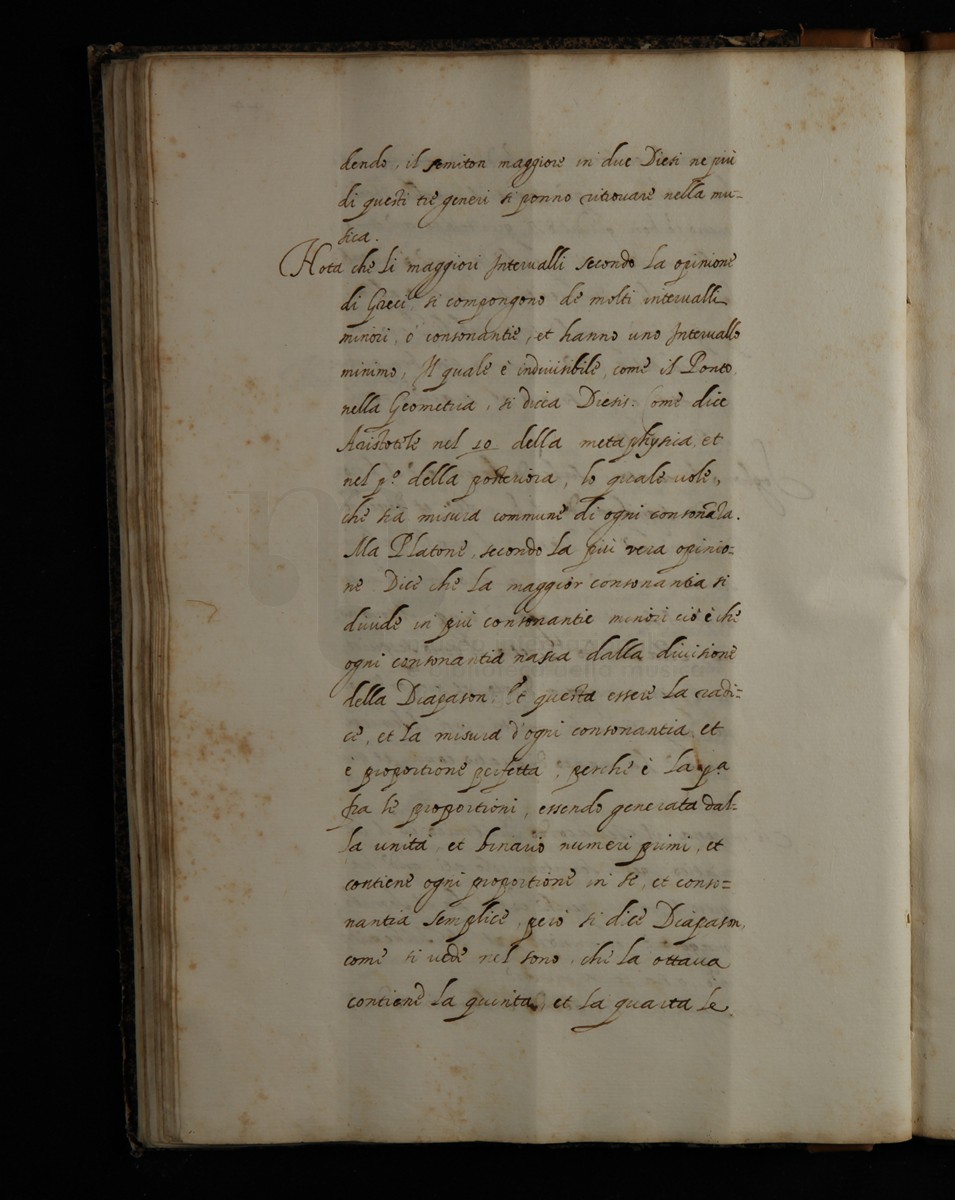 dendo, il semiton maggiore in due Diesi ne più
di questi tre generi si ponno ritrouare nella mu=
sica.
Nota che li maggiori Interualli secondo la opinione
di Greci si compongono de molti interualli
minori, ò consonantie, et hanno uno Interuallo
minimo, Il quale è indiuisibile, come il Ponto
nella Geometria, si dicea Diesis: Come dice
Aristotele nel 10 della metaphysica, et
nel p.º della posteriora, lo quale uole,
che sia misura commune di ogni consonãtia.
Ma Platone, secondo la più vera opinio=
ne Dice che la maggior consonantia si
diuide in più consonantie minori ciò è che
ogni consonantia nasca dalla diuisione
della Diapason, Et questa essere la radi=
ce, et la misura d'ogni consonantia, et
è proportione perfetta, perche è la pª
fra le proportioni, essendo generata dal=
la unità, et binario numeri primi, et
contiene ogni proportione in se, et conso=
nantia semplice, però si dice Diapason,
come si uede nel sono, che la ottaua
contiene la quinta, et la quarta le